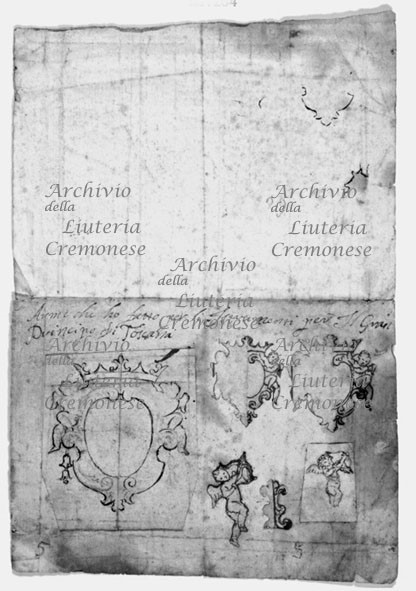 Archivio
della
Liuteria
Cremonese
Archivio
della
Liuteria
Cremonese
Archivio
della
Liuteria
Cremonese
Arme che ho fatto per li
per Il Gran
Principe di Toscana
Archivio
della
Liuteria
Cremonese
Archivio
della
Liuteria
Cremonese
5
5